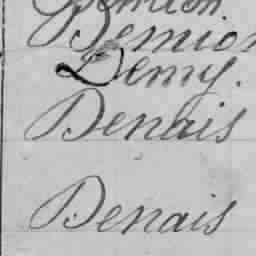 Demion
Denny.
Denais
Denais